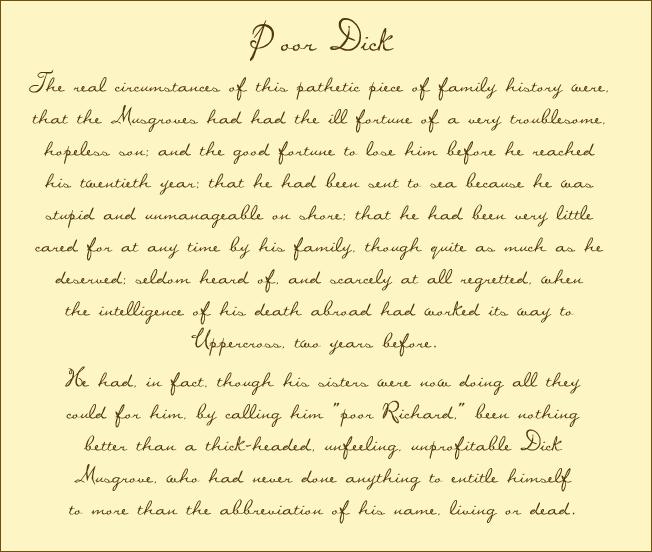 Poor Dick
The real circumstances of this pathetic piece of family history were,
that the Musgroves had had the ill fortune of a very troublesome,
hopeless son; and the good fortune to lose him before he reached
his twentieth year; that he had been sent to sea because he was
stupid and unmanageable on shore; that he had been very little
cared for at any time by his family, though quite as much as he
deserved; seldom heard of, and scarcely at all regretted, when
the intelligence of his death abroad had worked its way to
Uppercross, two years before.
He had, in fact, though his sisters were now doing all they
could for him, by calling him "poor Richard," been nothing
better than a thick-headed, unfeeling, unprofitable Dick
Musgrove, who had never done anything to entitle himself
to more than the abbreviation of his name, living or dead.